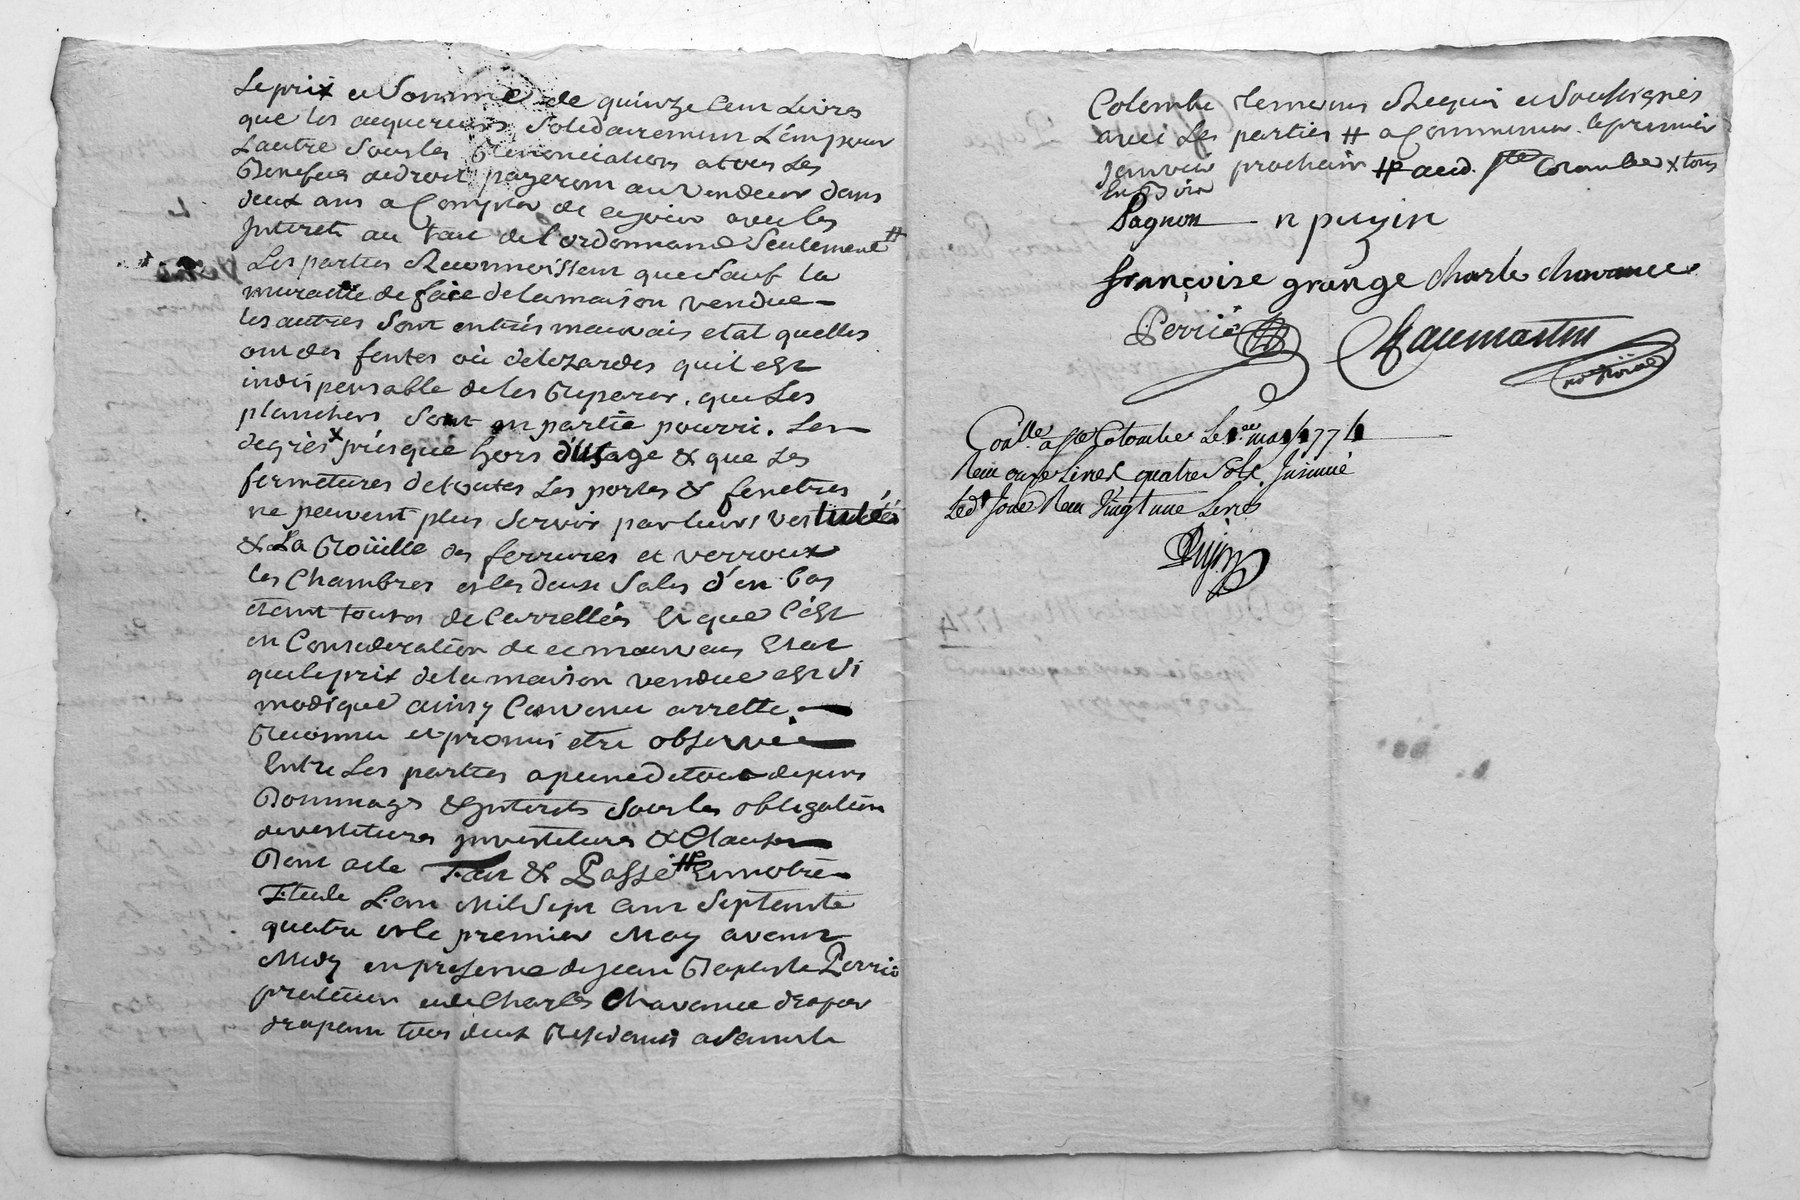 Le prix et Somme de quinze Cent Livres
que les acquereurs Solidairement L'un pour
Lautre Sous les Renonciations a tous Les
Benefices de droit payeront au Vendeur dans
deux ans a Compter de ce jour avec les
Interets au taux de l'ordonnance Seulement #
Les parties Reconnoissent que Sauf la
muraille de face de la maison vendue
les autres Sont en très mauvais etat quelles
ont des fentes où delezardes quil est
indispensable de les Reparer. que Les
planchers Sont en partie pourri. Les
degrès x présque hors d'usage & que Les
fermetures de toutes Les portes & fenetres
ne peuvent plus Servir par leurs vestustées
& La Roüille des ferrures et verroux
les Chambres et les deux Sales d'en bas
etant toutes deCarrellés et que C'est
en Consideration de ce mauvais Etat
que le prix de la maison vendue est Si
modique ainsy Convenu arretté
Reconnu et promis etre observé
Entre Les parties a peine de tous depens
Dommages & Interets Sous les obligation
devestitures Investitures & Clauses
Dont acte Fait & Passé # En notre
Etude L'an Mil Sept Cent Septente
quatre et le premier May avant
Midy en presence de Jean Baptiste Perrié
praticien et de Charles Chavance drapier
drapeur tous deux Residants a Sainte
Colombe temoins Requis et Soussignés
avec Les parties # a Commencer le premier
Janvier prochain # aud. Ste Colombe x tous
Pagnon n pugin
françoise grange Charle Chavance
Perrié
notoire
Conlle a Ste Colombe Le 1.er may 1774
Reçu onze Livres quatre Sols. Insinué
Led. Jour Reçu Vingt une Livres
Pujin
1774